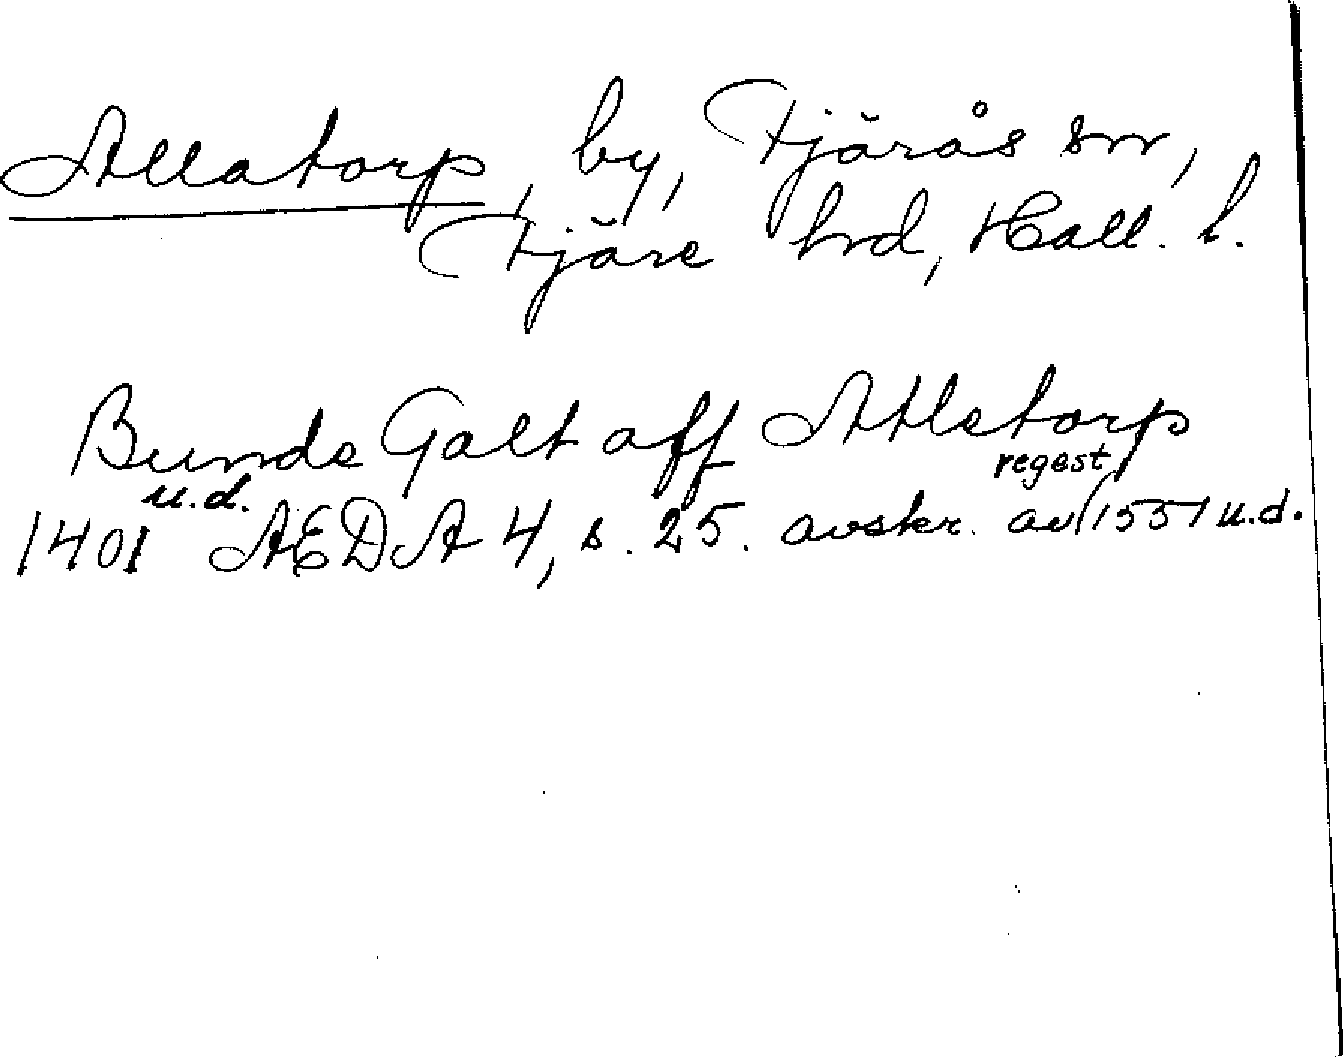 Allatorp, by, Fjärås sn,
Fjäre hd, Hall. l.
Bunde Galt aff Atletorp
1401 u.d. AEDA 4, s. 25. avskr. av regest 1551 u.d.